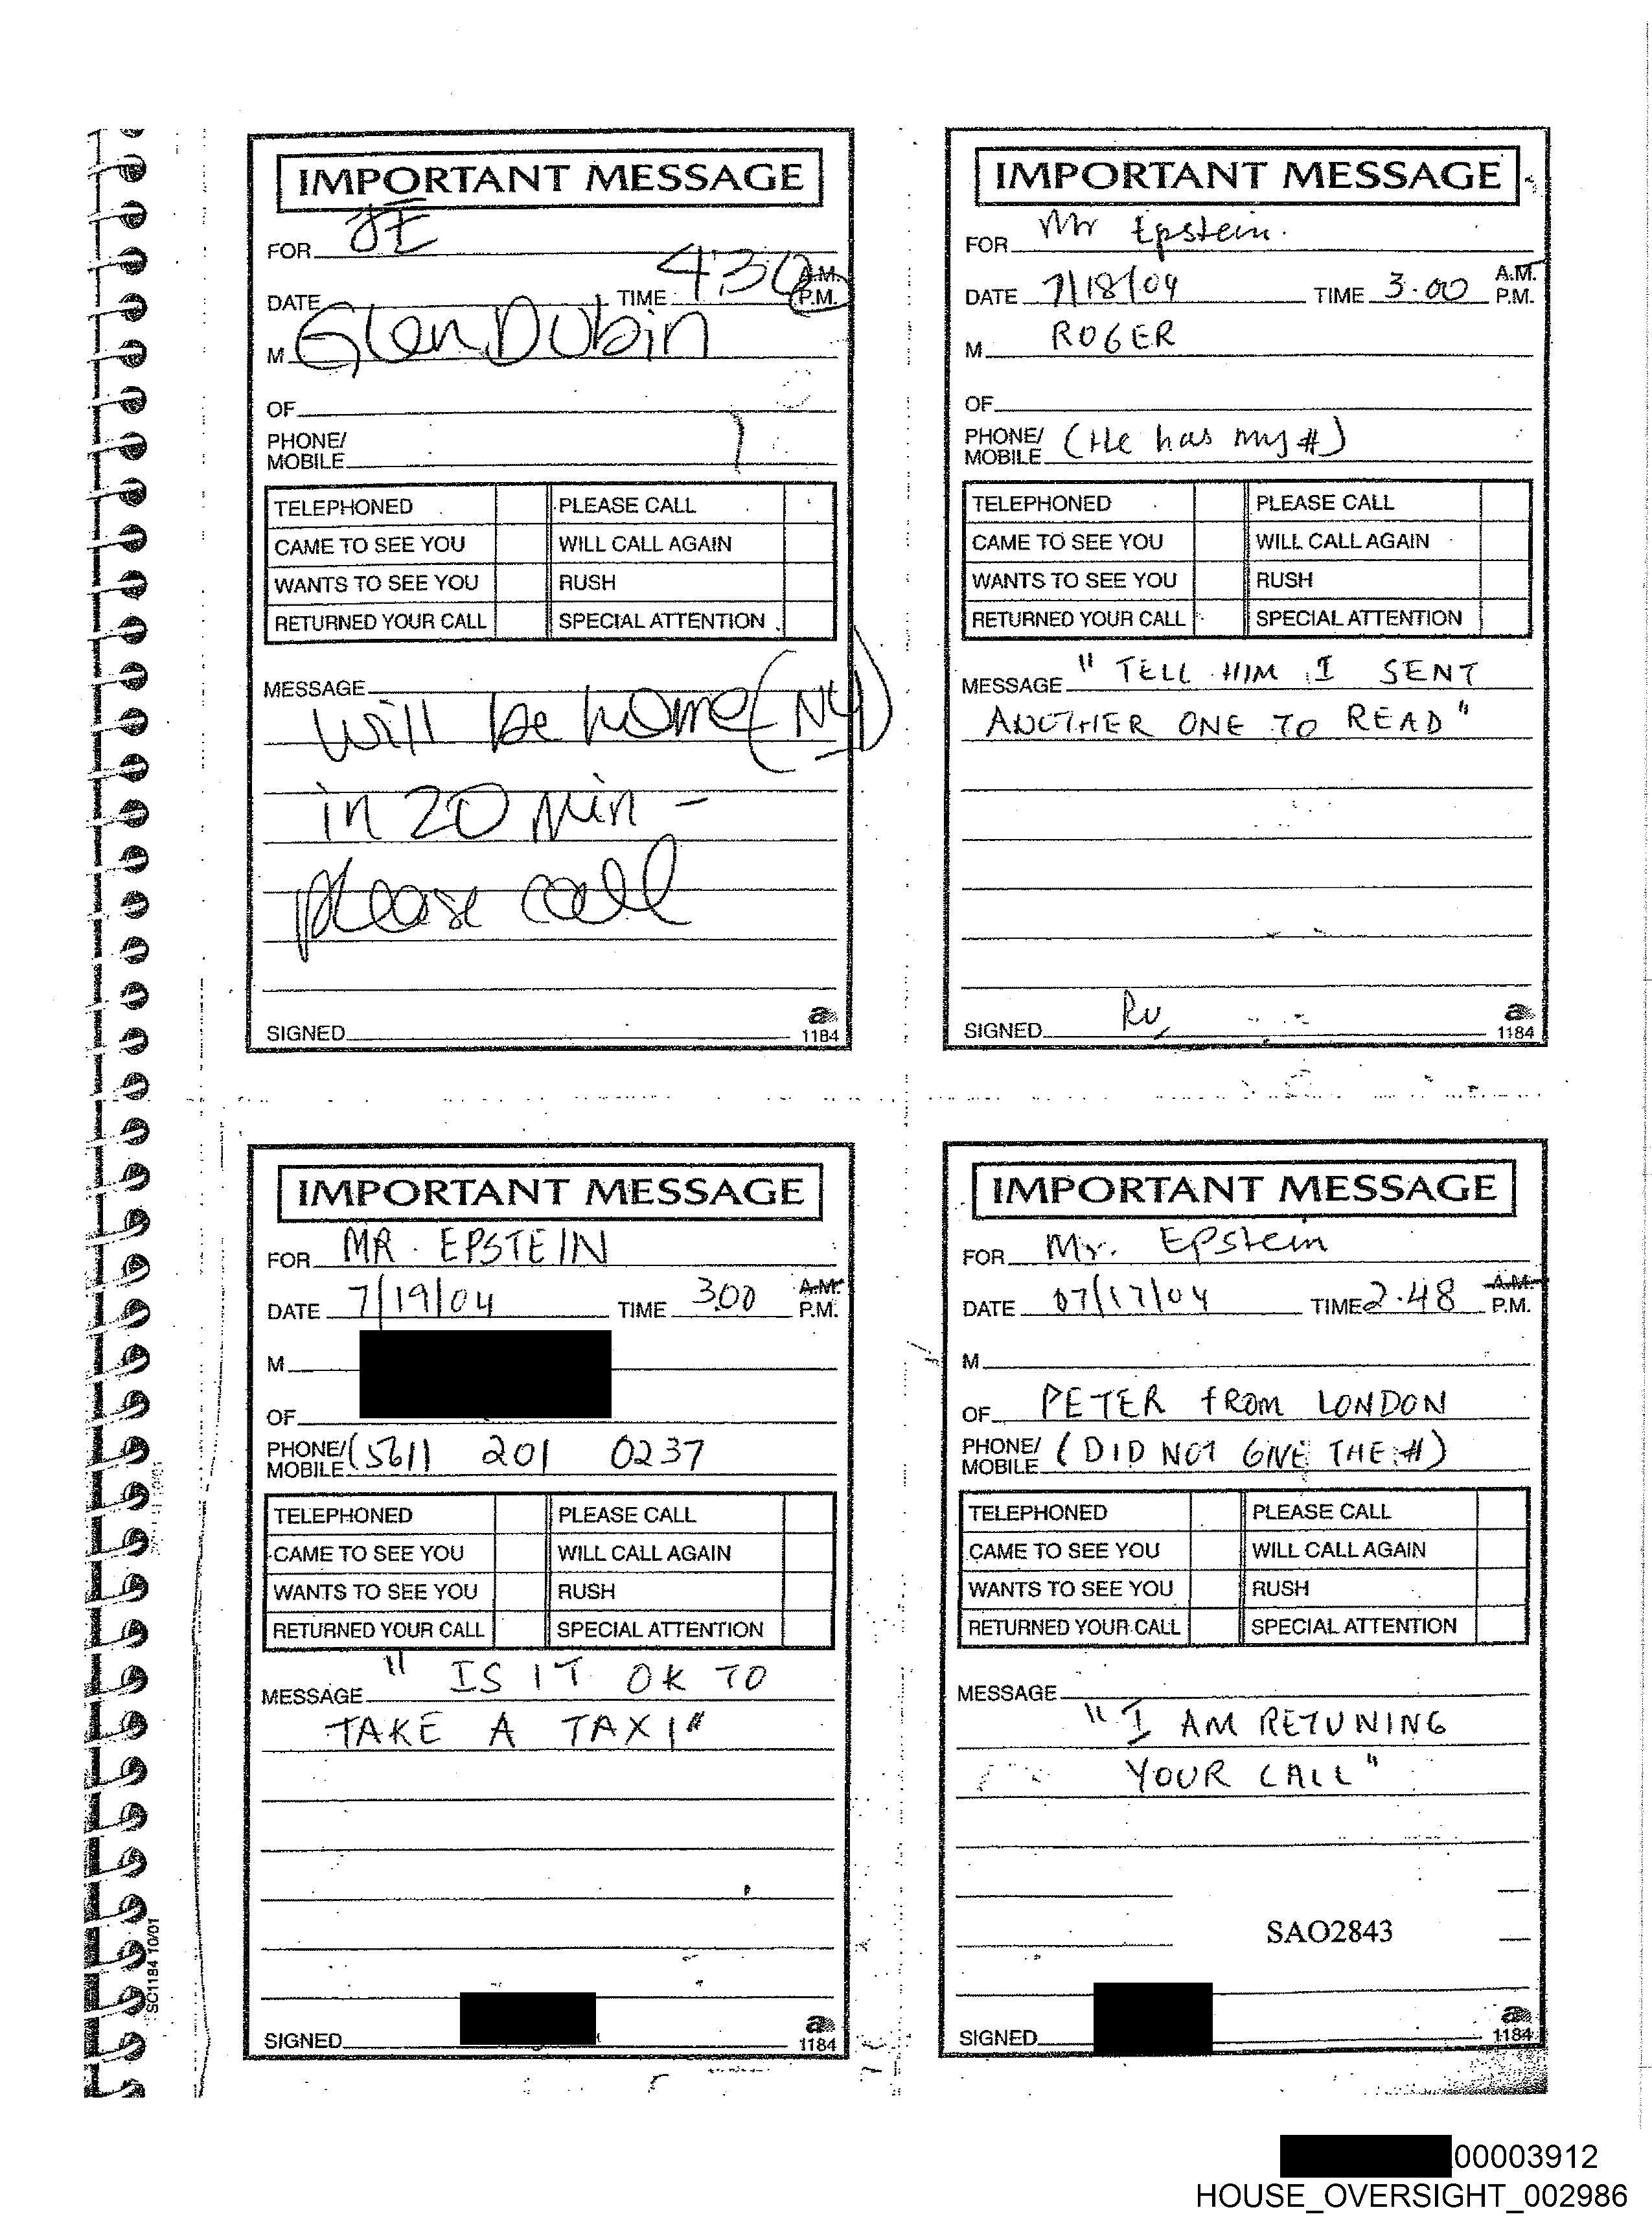 IMPORTANT MESSAGE
FOR JE
DATE TIME 4:30 A.M. P.M.
M Glen Dubin
OF
PHONE/ MOBILE
TELEPHONED PLEASE CALL
CAME TO SEE YOU WILL CALL AGAIN
WANTS TO SEE YOU RUSH
RETURNED YOUR CALL SPECIAL ATTENTION
MESSAGE
will be home (NY)
in 20 min -
please call
SIGNED
a
1184
IMPORTANT MESSAGE
FOR Mr Epstein.
DATE 7/18/04 TIME 3.00 A.M. P.M.
M ROGER
OF
PHONE/ MOBILE (He has my #)
TELEPHONED PLEASE CALL
CAME TO SEE YOU WILL CALL AGAIN
WANTS TO SEE YOU RUSH
RETURNED YOUR CALL SPECIAL ATTENTION
MESSAGE " TELL HIM I SENT
ANOTHER ONE TO READ"
SIGNED
a
1184
IMPORTANT MESSAGE
FOR MR. EPSTEIN
DATE 7/19/04 TIME 3.00 A.M. P.M.
M
OF
PHONE/ MOBILE (561) 201 0237
TELEPHONED PLEASE CALL
CAME TO SEE YOU WILL CALL AGAIN
WANTS TO SEE YOU RUSH
RETURNED YOUR CALL SPECIAL ATTENTION
MESSAGE " IS IT OK TO
TAKE A TAXI"
SIGNED
a
1184
IMPORTANT MESSAGE
FOR Mr. Epstein
DATE 07/17/04 TIME 2.48 A.M. P.M.
M
OF PETER FROM LONDON
PHONE/ MOBILE (DID NOT GIVE THE #)
TELEPHONED PLEASE CALL
CAME TO SEE YOU WILL CALL AGAIN
WANTS TO SEE YOU RUSH
RETURNED YOUR CALL SPECIAL ATTENTION
MESSAGE
"I AM RETUNING
YOUR CALL"
SAO2843
SIGNED
a
1184
SC1184 10/01
00003912
HOUSE_OVERSIGHT_002986